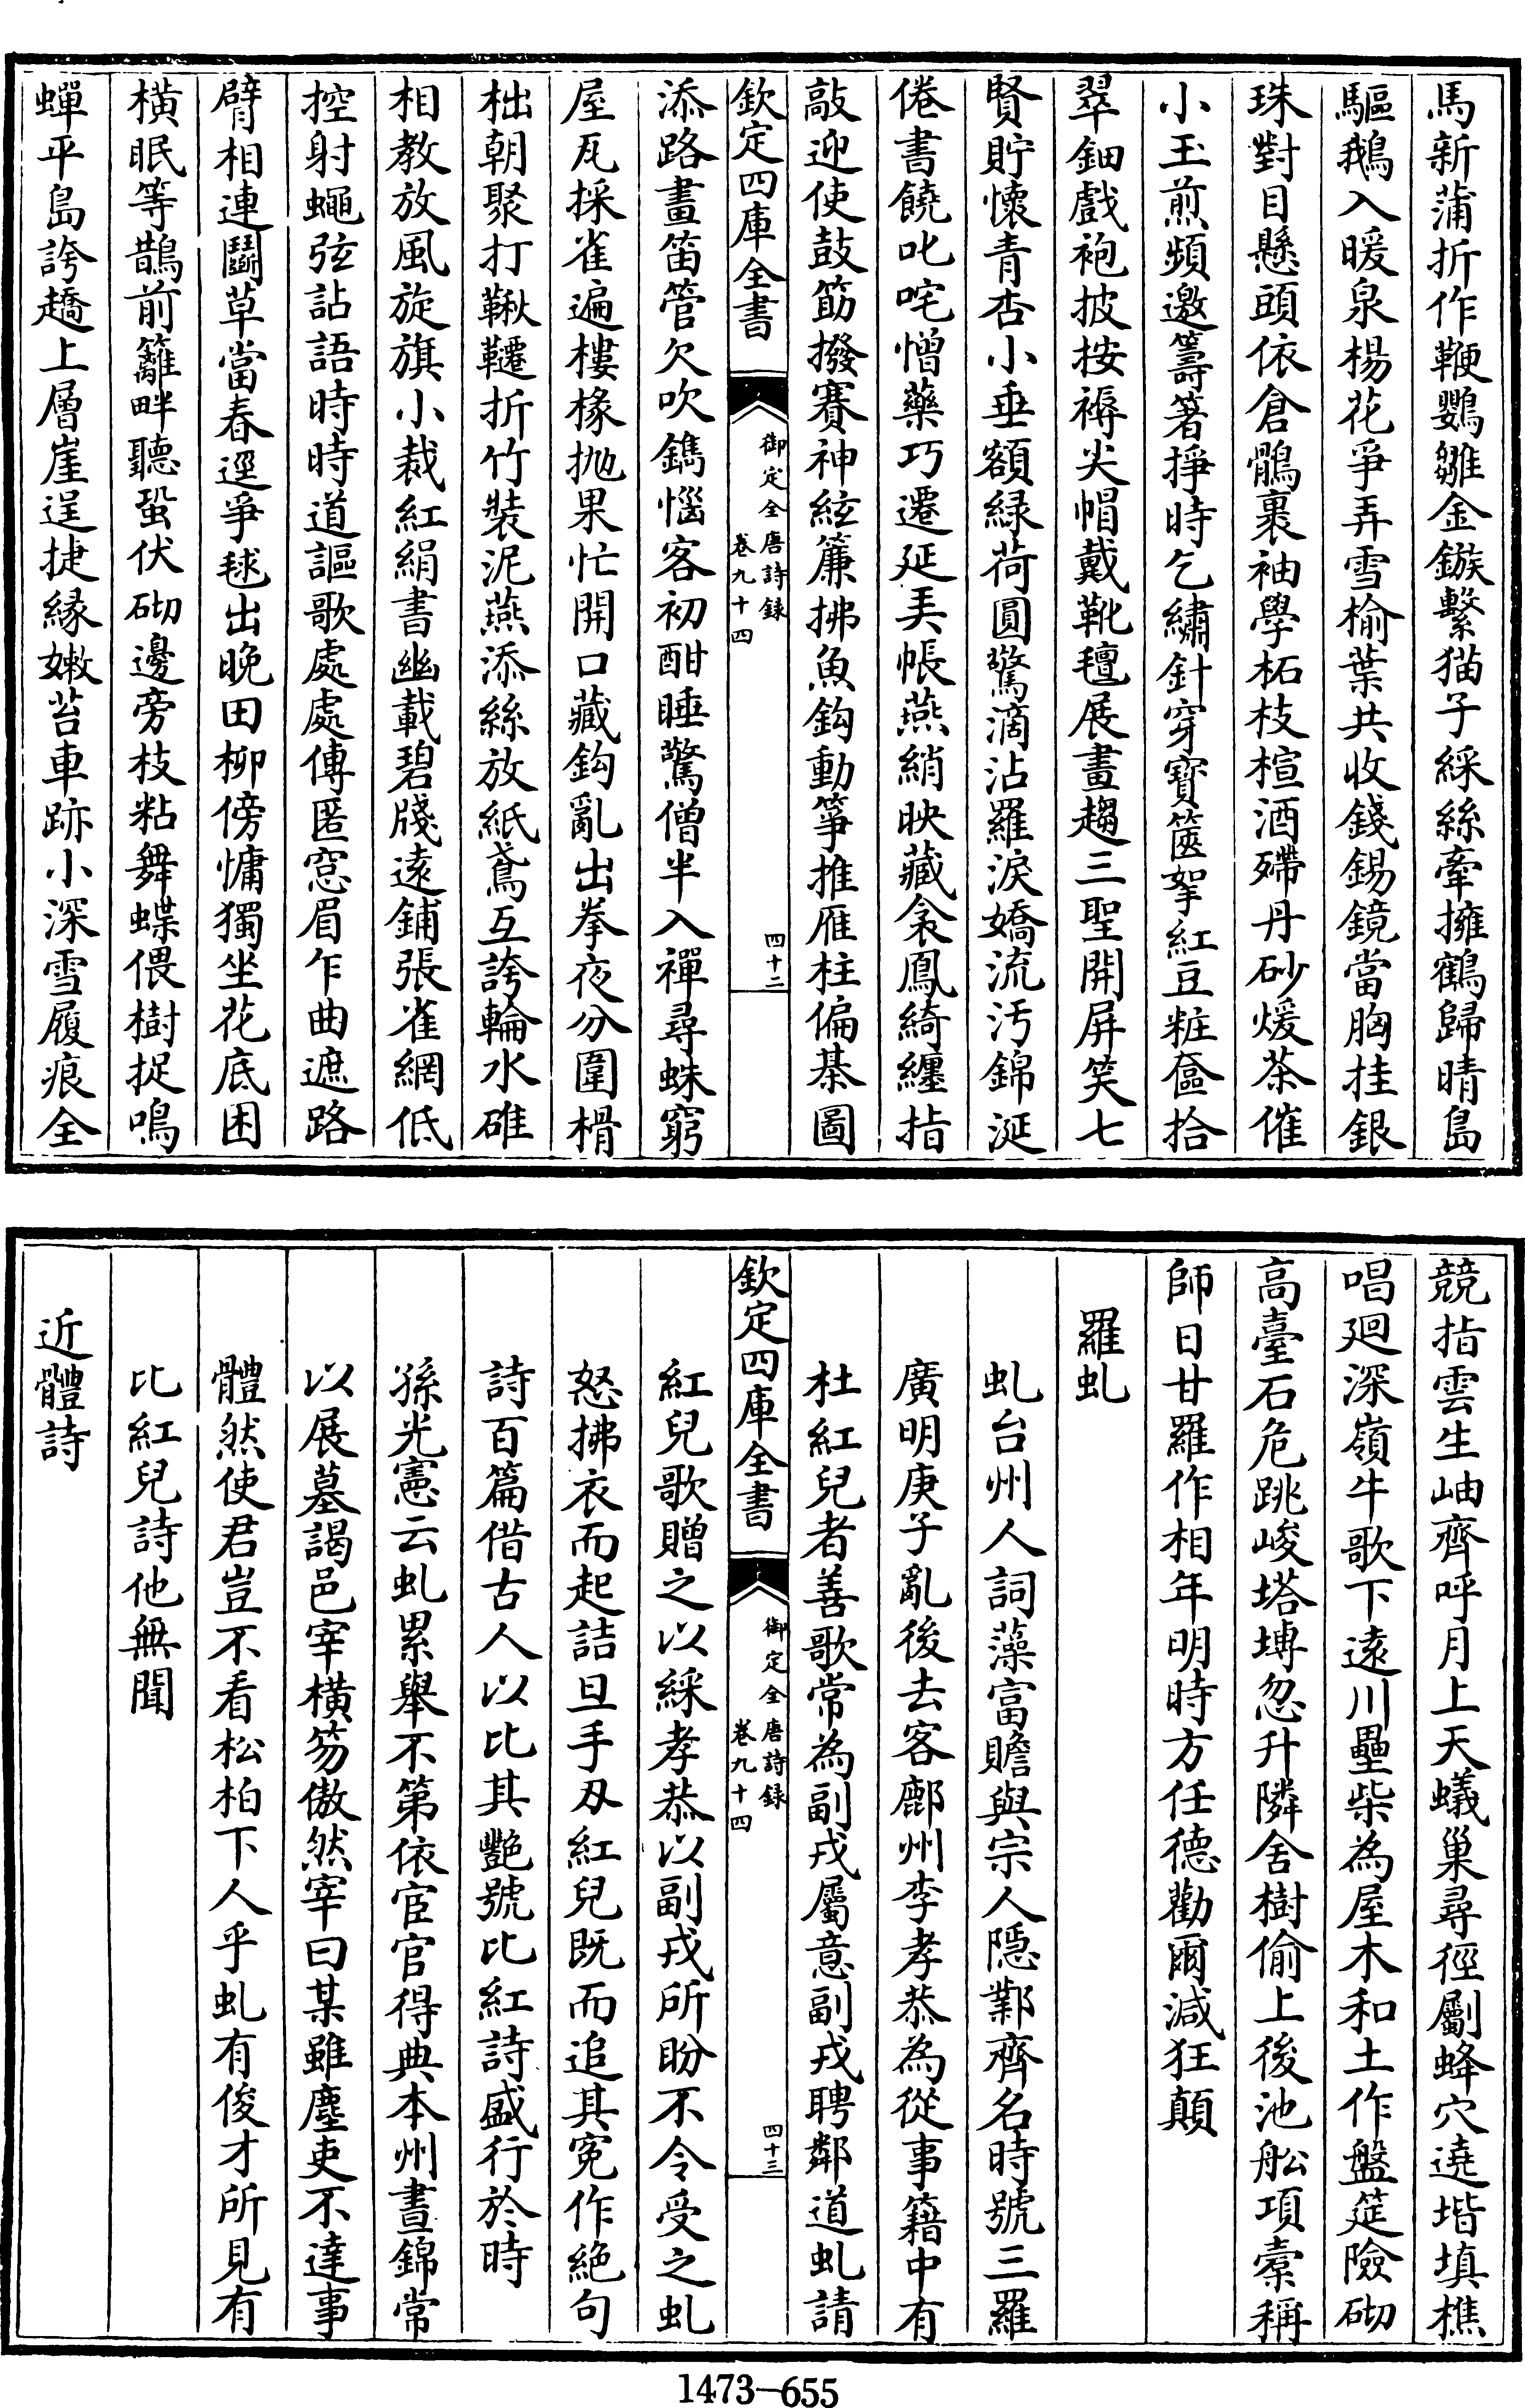 馬新蒲折作鞭鸚雛金鏃繫猫子綵絲牽擁鶴歸晴島
驅鵝入暖泉楊花爭弄雪榆葉共收錢錫鏡當胸挂銀
珠對目懸頭依倉鶻裹袖學柘枝揎酒殢丹砂煖茶催
小玉煎頻邀籌箸掙時乞繡針穿寳篋拏紅豆粧奩拾
翠鈿戲袍披按褥尖帽戴靴氊展畫趨三聖開屏笑七
賢貯懷青杏小垂額緑荷圓驚滴沾羅淚嬌流汚錦涎
倦書饒叱咤憎藥巧遷延弄帳燕綃映藏衾鳳綺纏指
敲迎使鼓筯撥賽神絃簾拂魚鈎動箏推雁柱偏棊圖
欽定四庫全書
御定全唐詩録
卷九十四
四十二
添路畫笛管欠吹鐫惱客初酣睡驚僧半入禪尋蛛窮
屋瓦採雀遍樓椽抛果忙開口藏鈎亂出拳夜分圍榾
柮朝聚打鞦韆折竹裝泥燕添絲放紙鳶互誇輪水碓
相教放風旋旗小裁紅絹書幽截碧牋逺鋪張雀網低
控射蠅弦詀語時時道謳歌處處傳匿窓眉乍曲遮路
臂相連鬬草當春逕爭毬出晚田柳傍慵獨坐花底困
橫眠等鵲前籬畔聽蛩伏砌邊旁枝粘舞蝶偎樹捉鳴
蟬平島誇趫上層崖逞捷緣嫩苔車跡小深雪履痕全
競指雲生岫齊呼月上天蟻巢尋徑劚蜂穴遶堦填樵
唱廻深嶺牛歌下逺川壘柴為屋木和土作盤筵險砌
高臺石危跳峻塔塼忽升隣舍樹偷上後池船項橐稱
師日甘羅作相年明時方任徳勸爾減狂顛
羅虬
虬台州人詞藻富贍與宗人隠鄴齊名時號三羅
廣明庚子亂後去客鄜州李孝恭為從事籍中有
杜紅兒者善歌常為副戎屬意副戎聘鄰道虬請
欽定四庫全書
御定全唐詩録
卷九十四
四十三
紅兒歌贈之以綵孝恭以副戎所盼不令受之虬
怒拂衣而起詰旦手刄紅兒既而追其寃作絶句
詩百篇借古人以比其艷號比紅詩盛行於時
孫光憲云虬累舉不第依宦官得典本州晝錦常
以展墓謁邑宰橫笏傲然宰曰某雖塵吏不達事
體然使君豈不看松柏下人乎虬有俊才所見有
比紅兒詩他無聞
近體詩
1473—655